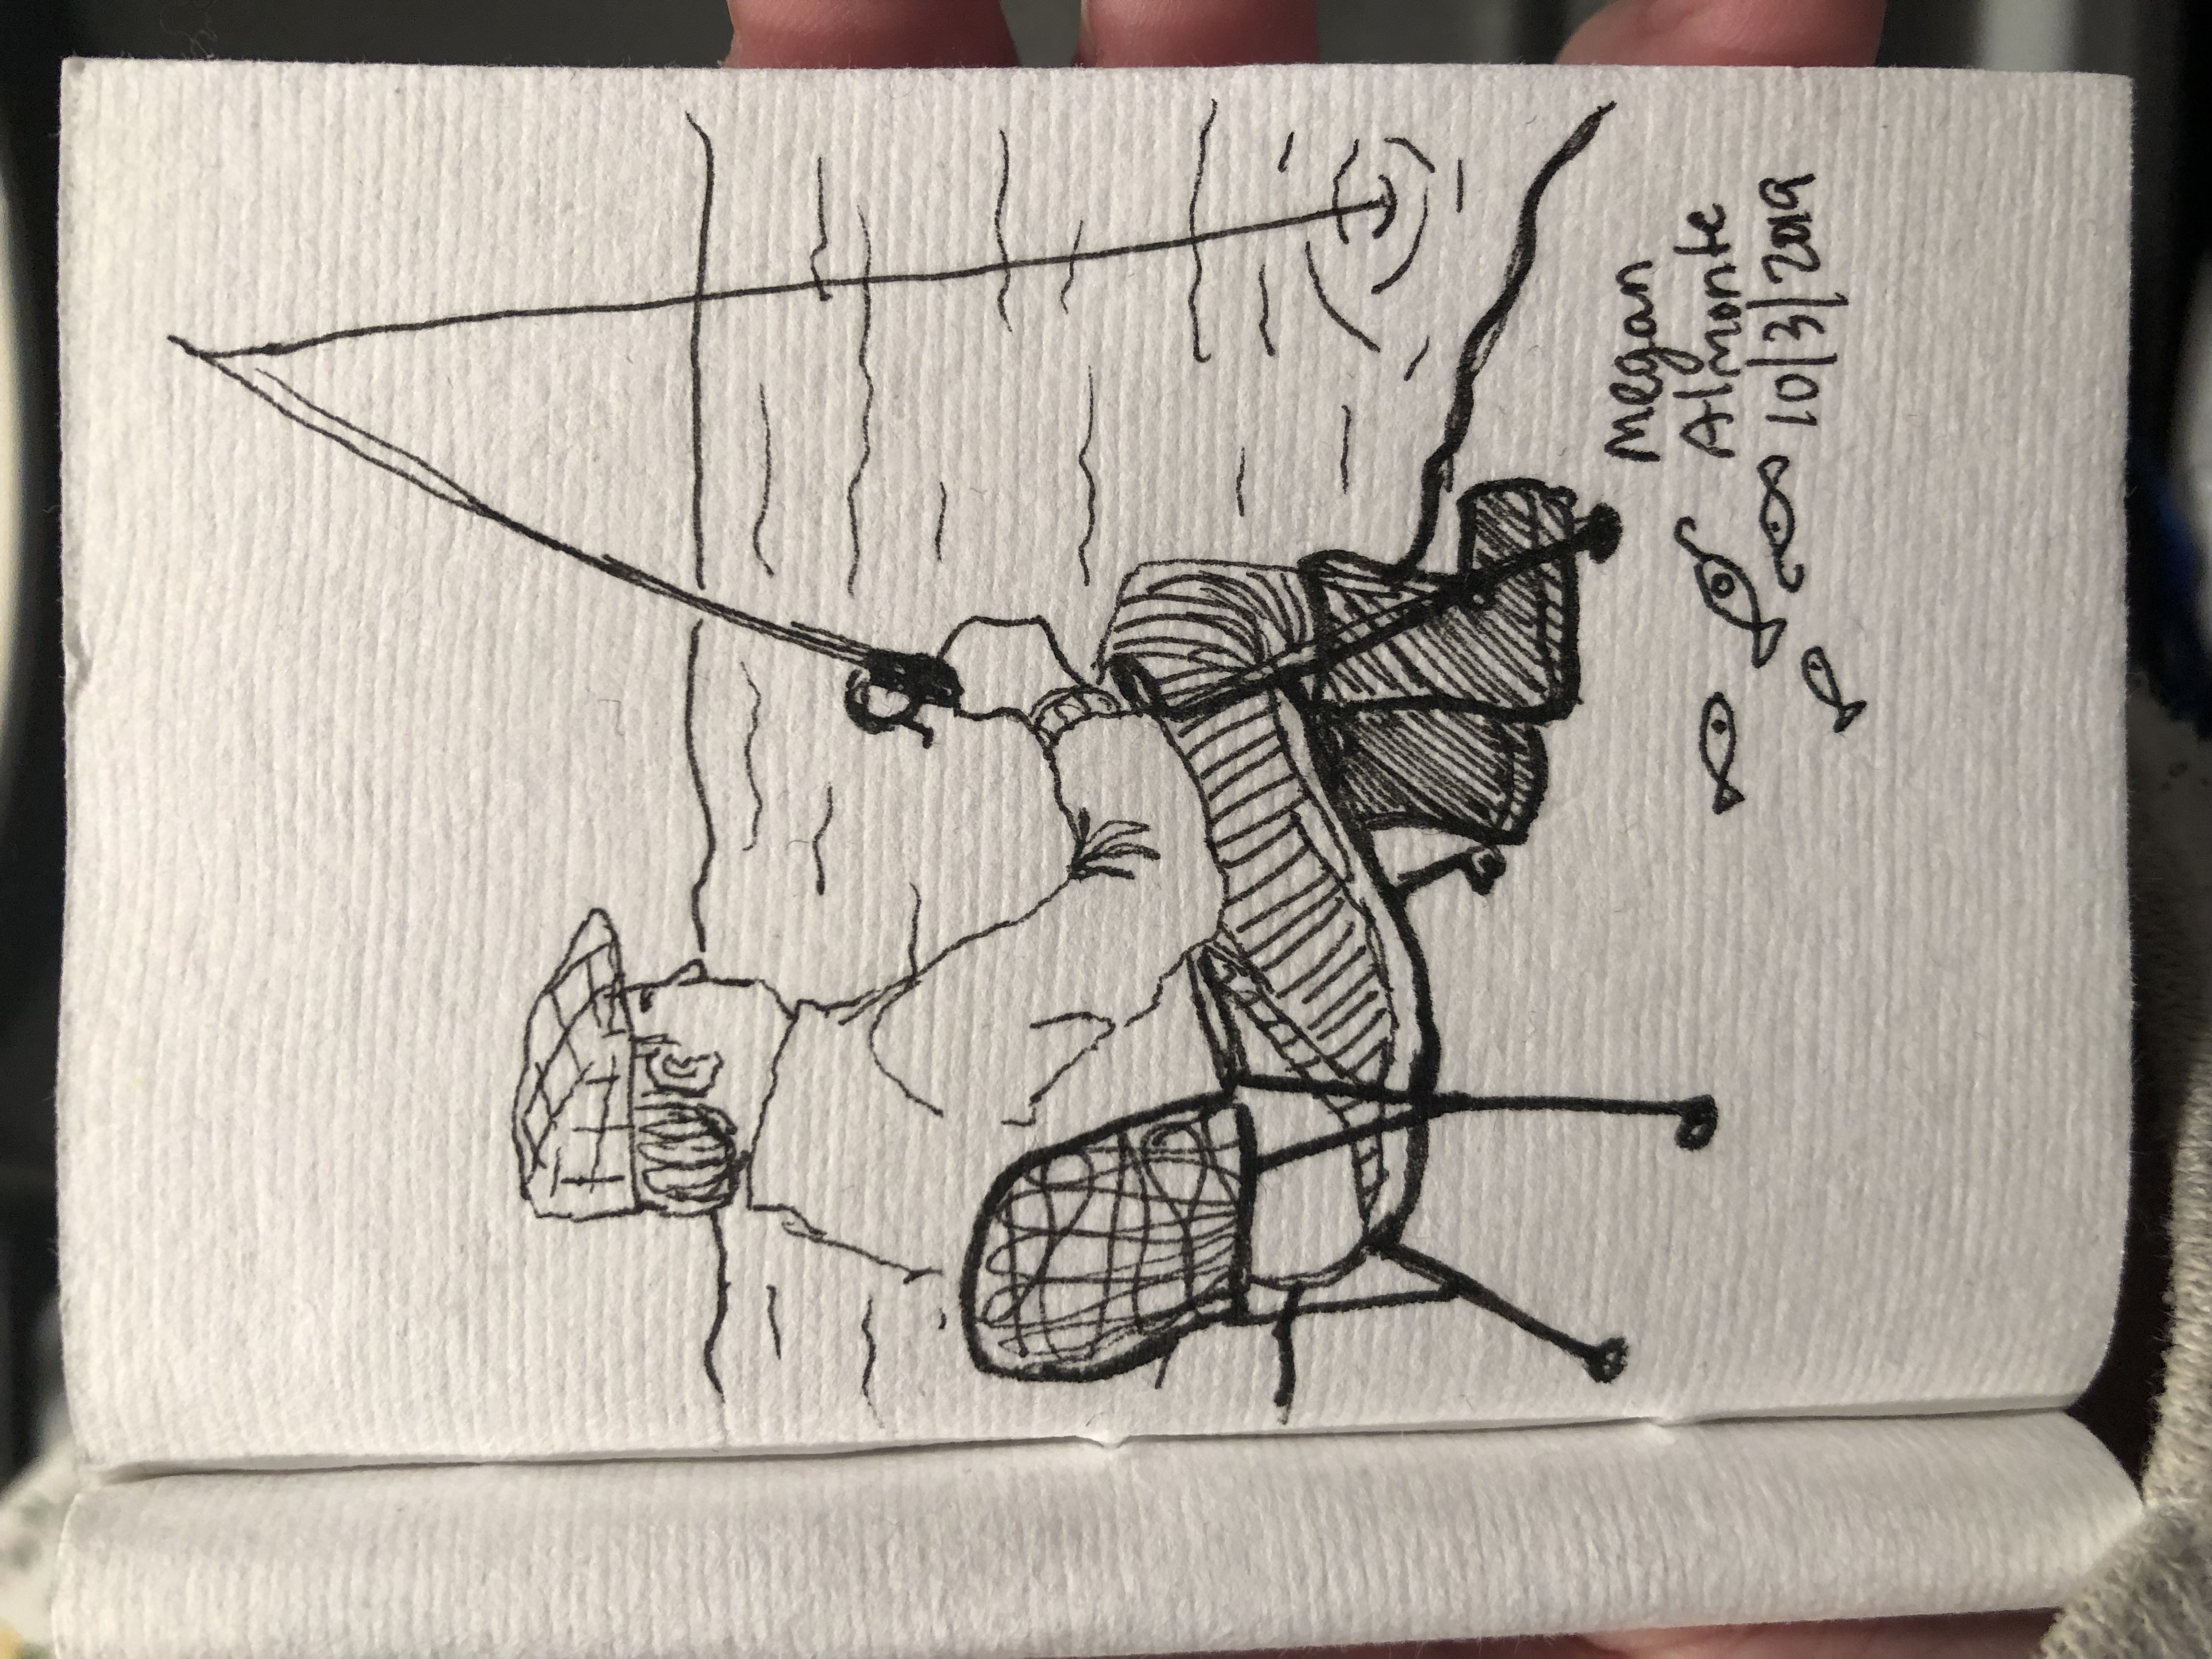 Megan
Almonte
10/3/2019